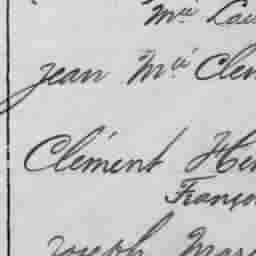 Mie Lau
Jean Mie Clem
Clément Hen
Franço
Joseph Mar